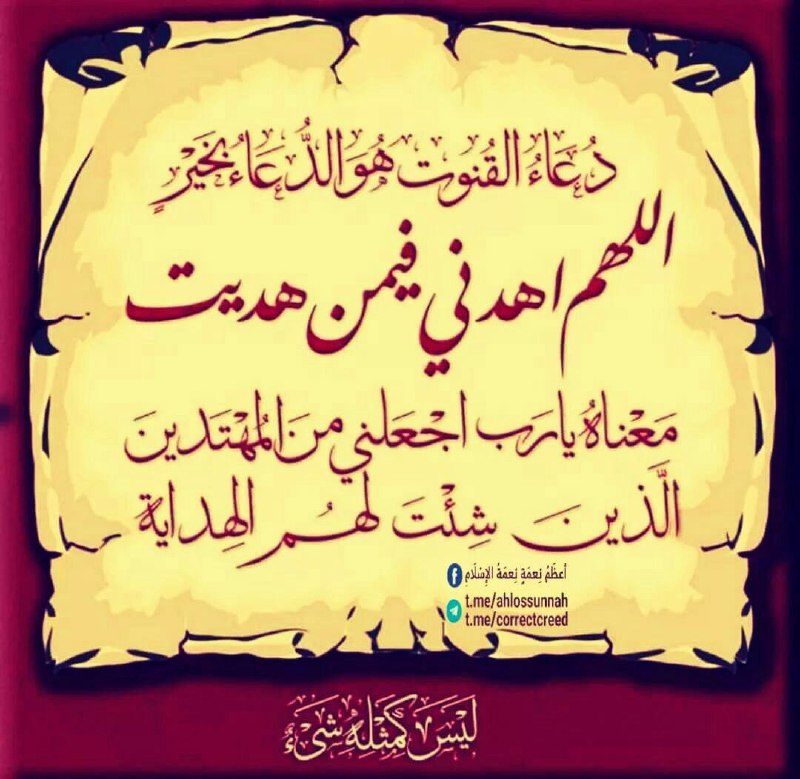 دُعَاءُ القُنوت هُوَ الدُّعَاءُ بِخَيْرٍ
اللهم اهدني فيمن هديت
مَعْناهُ يا رَب اجْعَلني مِنَ المُهْتَدينَ
الَّذينَ شِئْتَ لهُم الهِداية
أعظَمُ نِعمَةٍ نِعمَةُ الإِسْلَامِ
t.me/ahlossunnah
t.me/correctcreed
لَيْسَ كَمِثْلِهِ شَىْءٌ